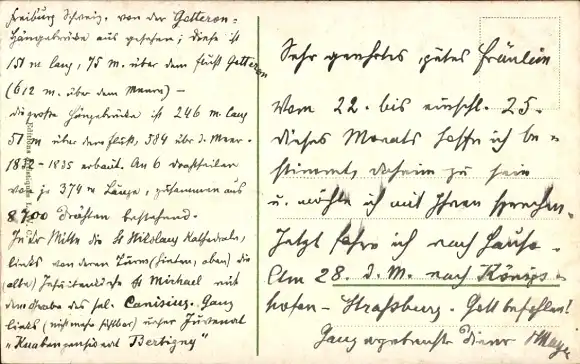 Freiburg Schweiz, von der Gotteron-
Hängebrücke aus gesehen; diese ist
151 m lang, 75 m. über dem Fluß Gotteron
(612 m. über dem Meere) –
die große Hängebrücke ist 246 m. lang
51 m über dem Fluß, 584 übr d. Meer.
1832-1835 erbaut. An 6 Drahtseilen
von je 374 m Länge, zusammen aus
8400 Drähten bestehend.
In der Mitte die St Nikolaus Kathedrale,
links von deren Turm (hinten, oben) die
(alte) Jesuitenkirche St Michael mit
dem Grabe des sel. Canisius. Ganz
links (nicht mehr sichtbar) unser Juvenat
"Knabenpensionat Bertigny"
Sehr geehrtes, gutes Fräulein
Vom 22. bis einschl. 25.
dieses Monats hoffe ich be=
stimmt, daheim zu sein
u. möchte ich mit Ihnen sprechen.
Jetzt fahre ich nach Hause.
Am 28. d. M. nach Königs-
hofen – Straßburg. Gott befohlen!
Ganz ergebenster Diener